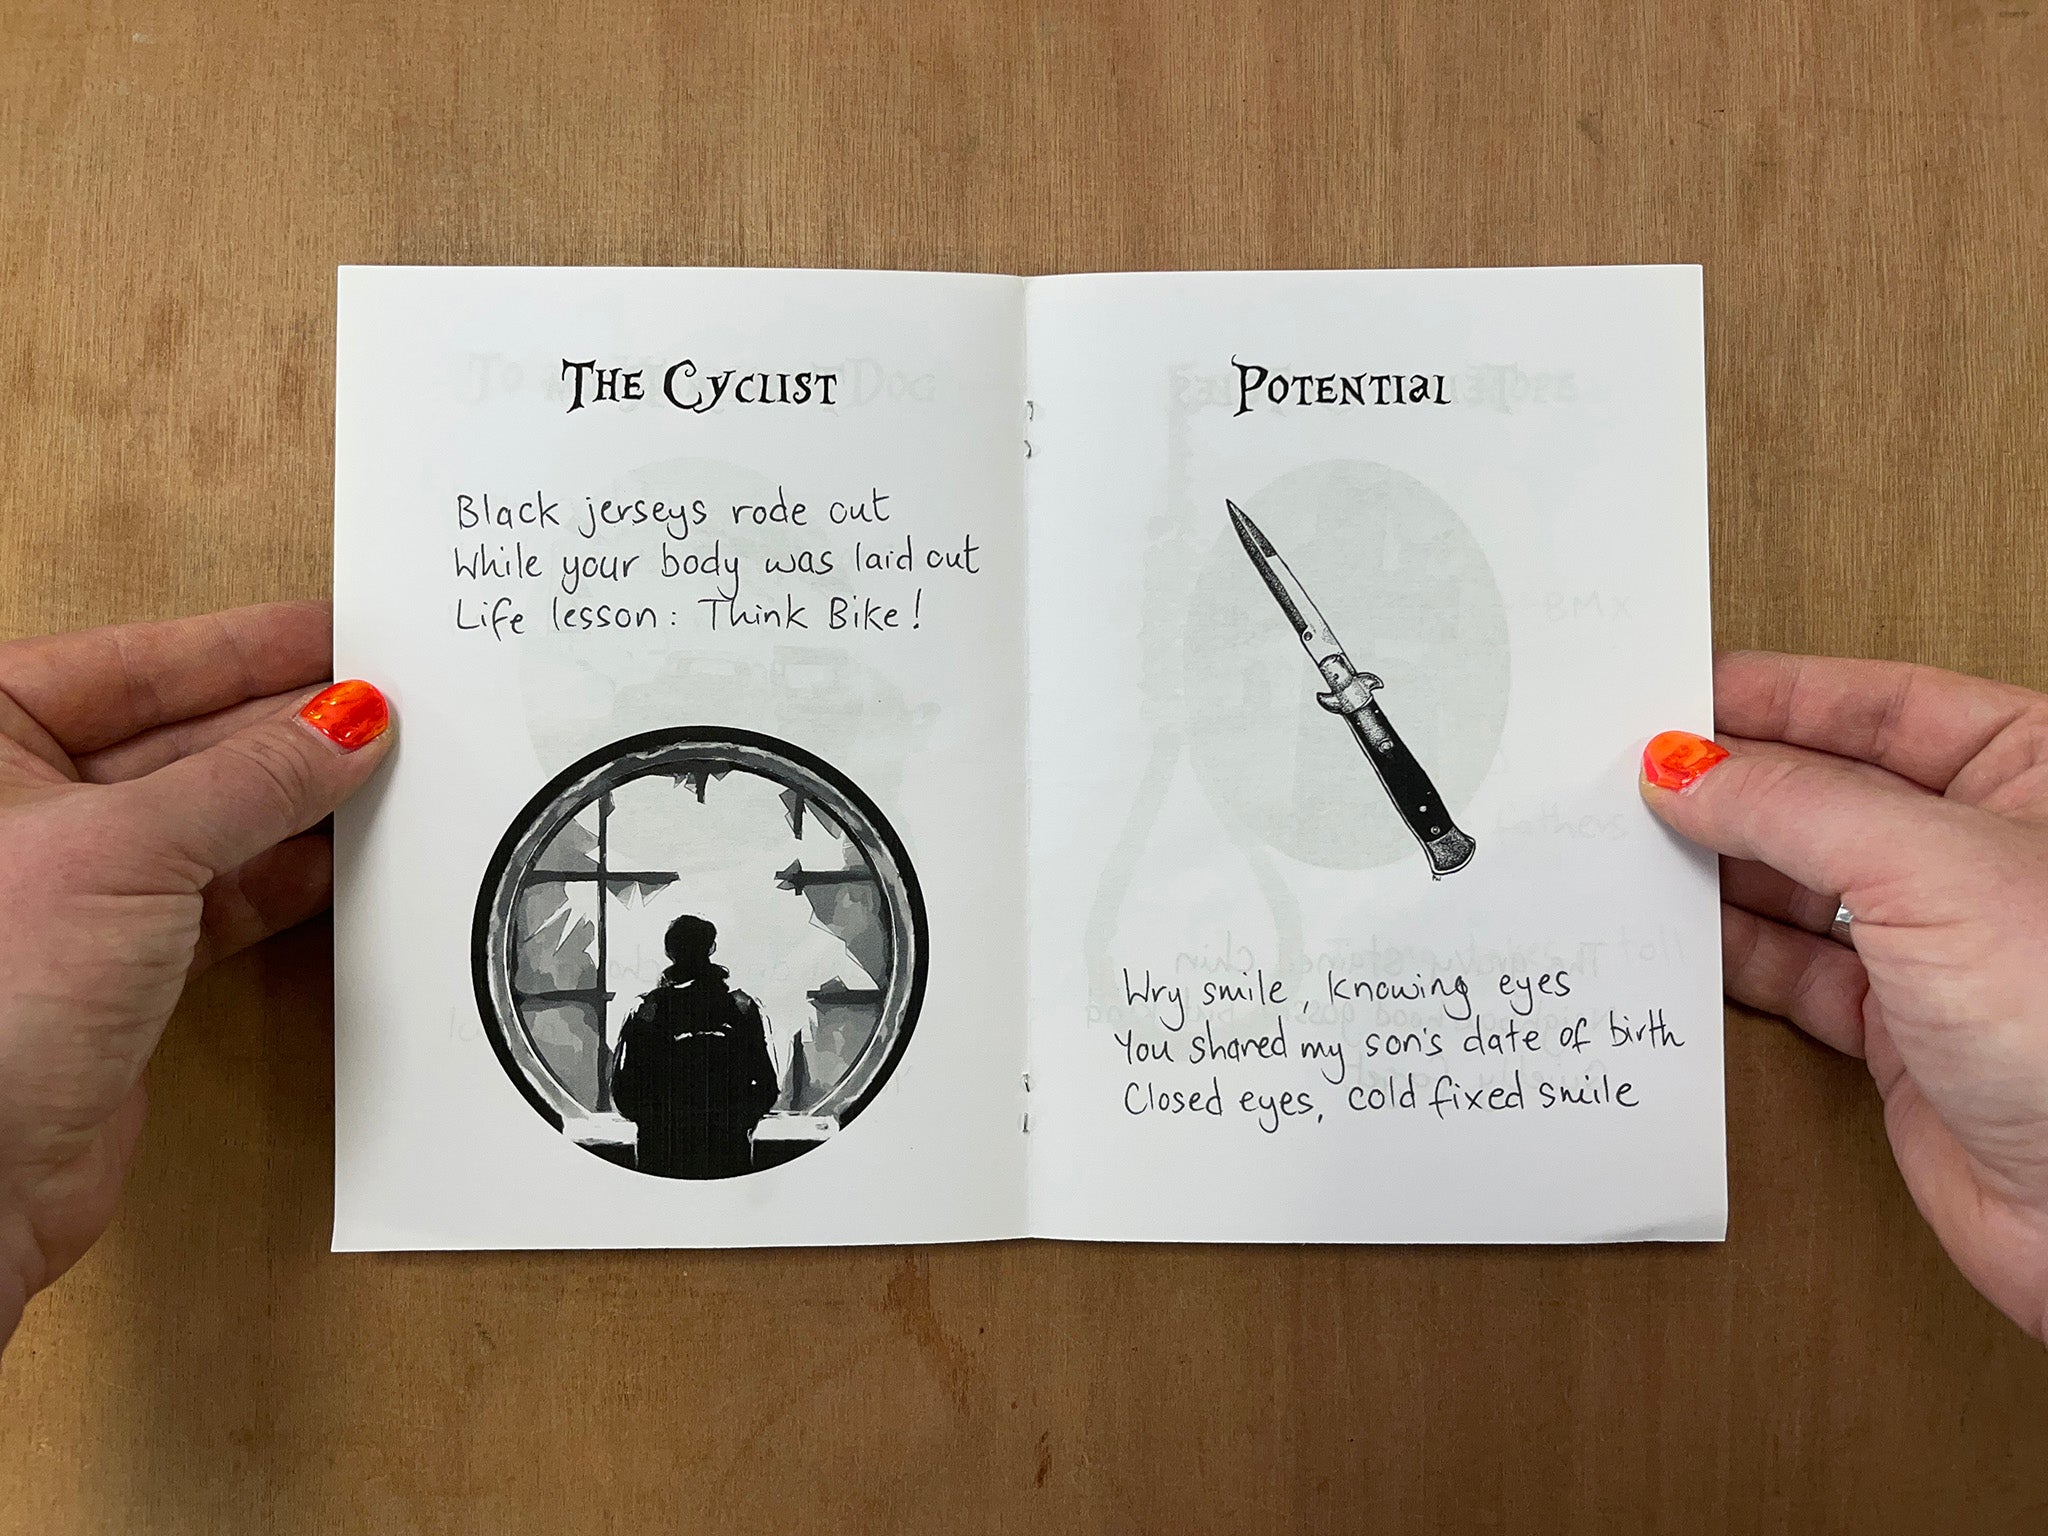 The Cyclist
Black jerseys rode out
While your body was laid out
Life lesson: Think Bike!
Potential
Wry smile, knowing eyes
You shared my son's date of birth
Closed eyes, cold fixed smile